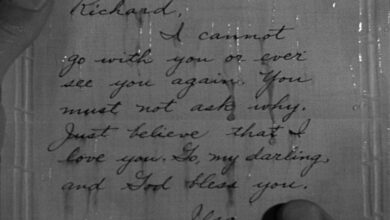 Richard,
I cannot
go with you or ever
see you again. You
must not ask why.
Just believe that I
love you. Go, my darling,
and God bless you.
Ilsa